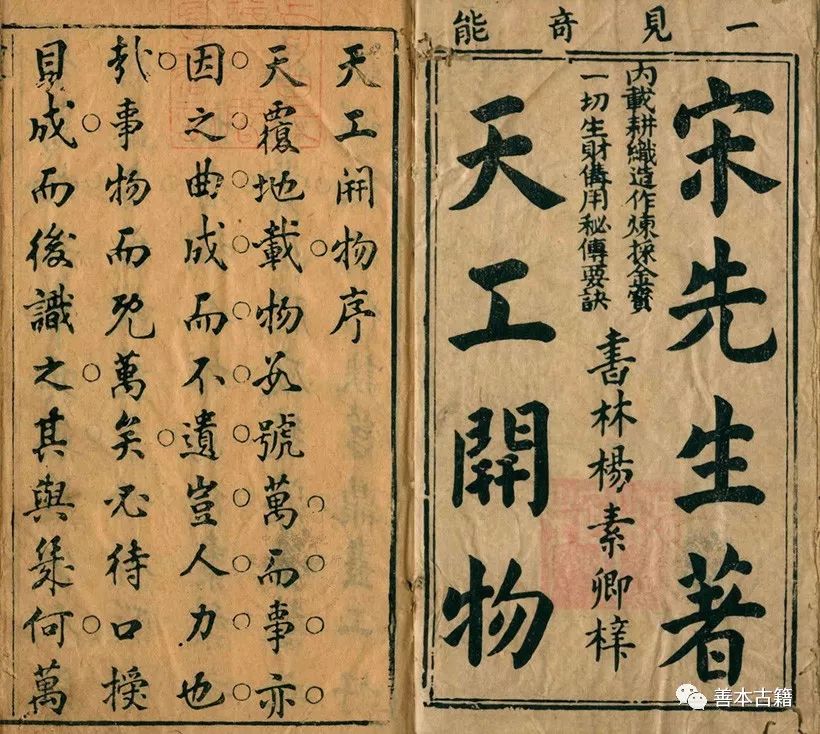 一見奇能
宋先生著
內載耕織造作煉採金寶
一切生財備用秘傳要訣
書林楊素卿梓
天工開物
天工開物序
天覆地載物数號萬而事亦
因之曲成而不遺豈人力也
㢤事物而旣萬矣必待口授
目成而後識之其與幾何萬
善本古籍